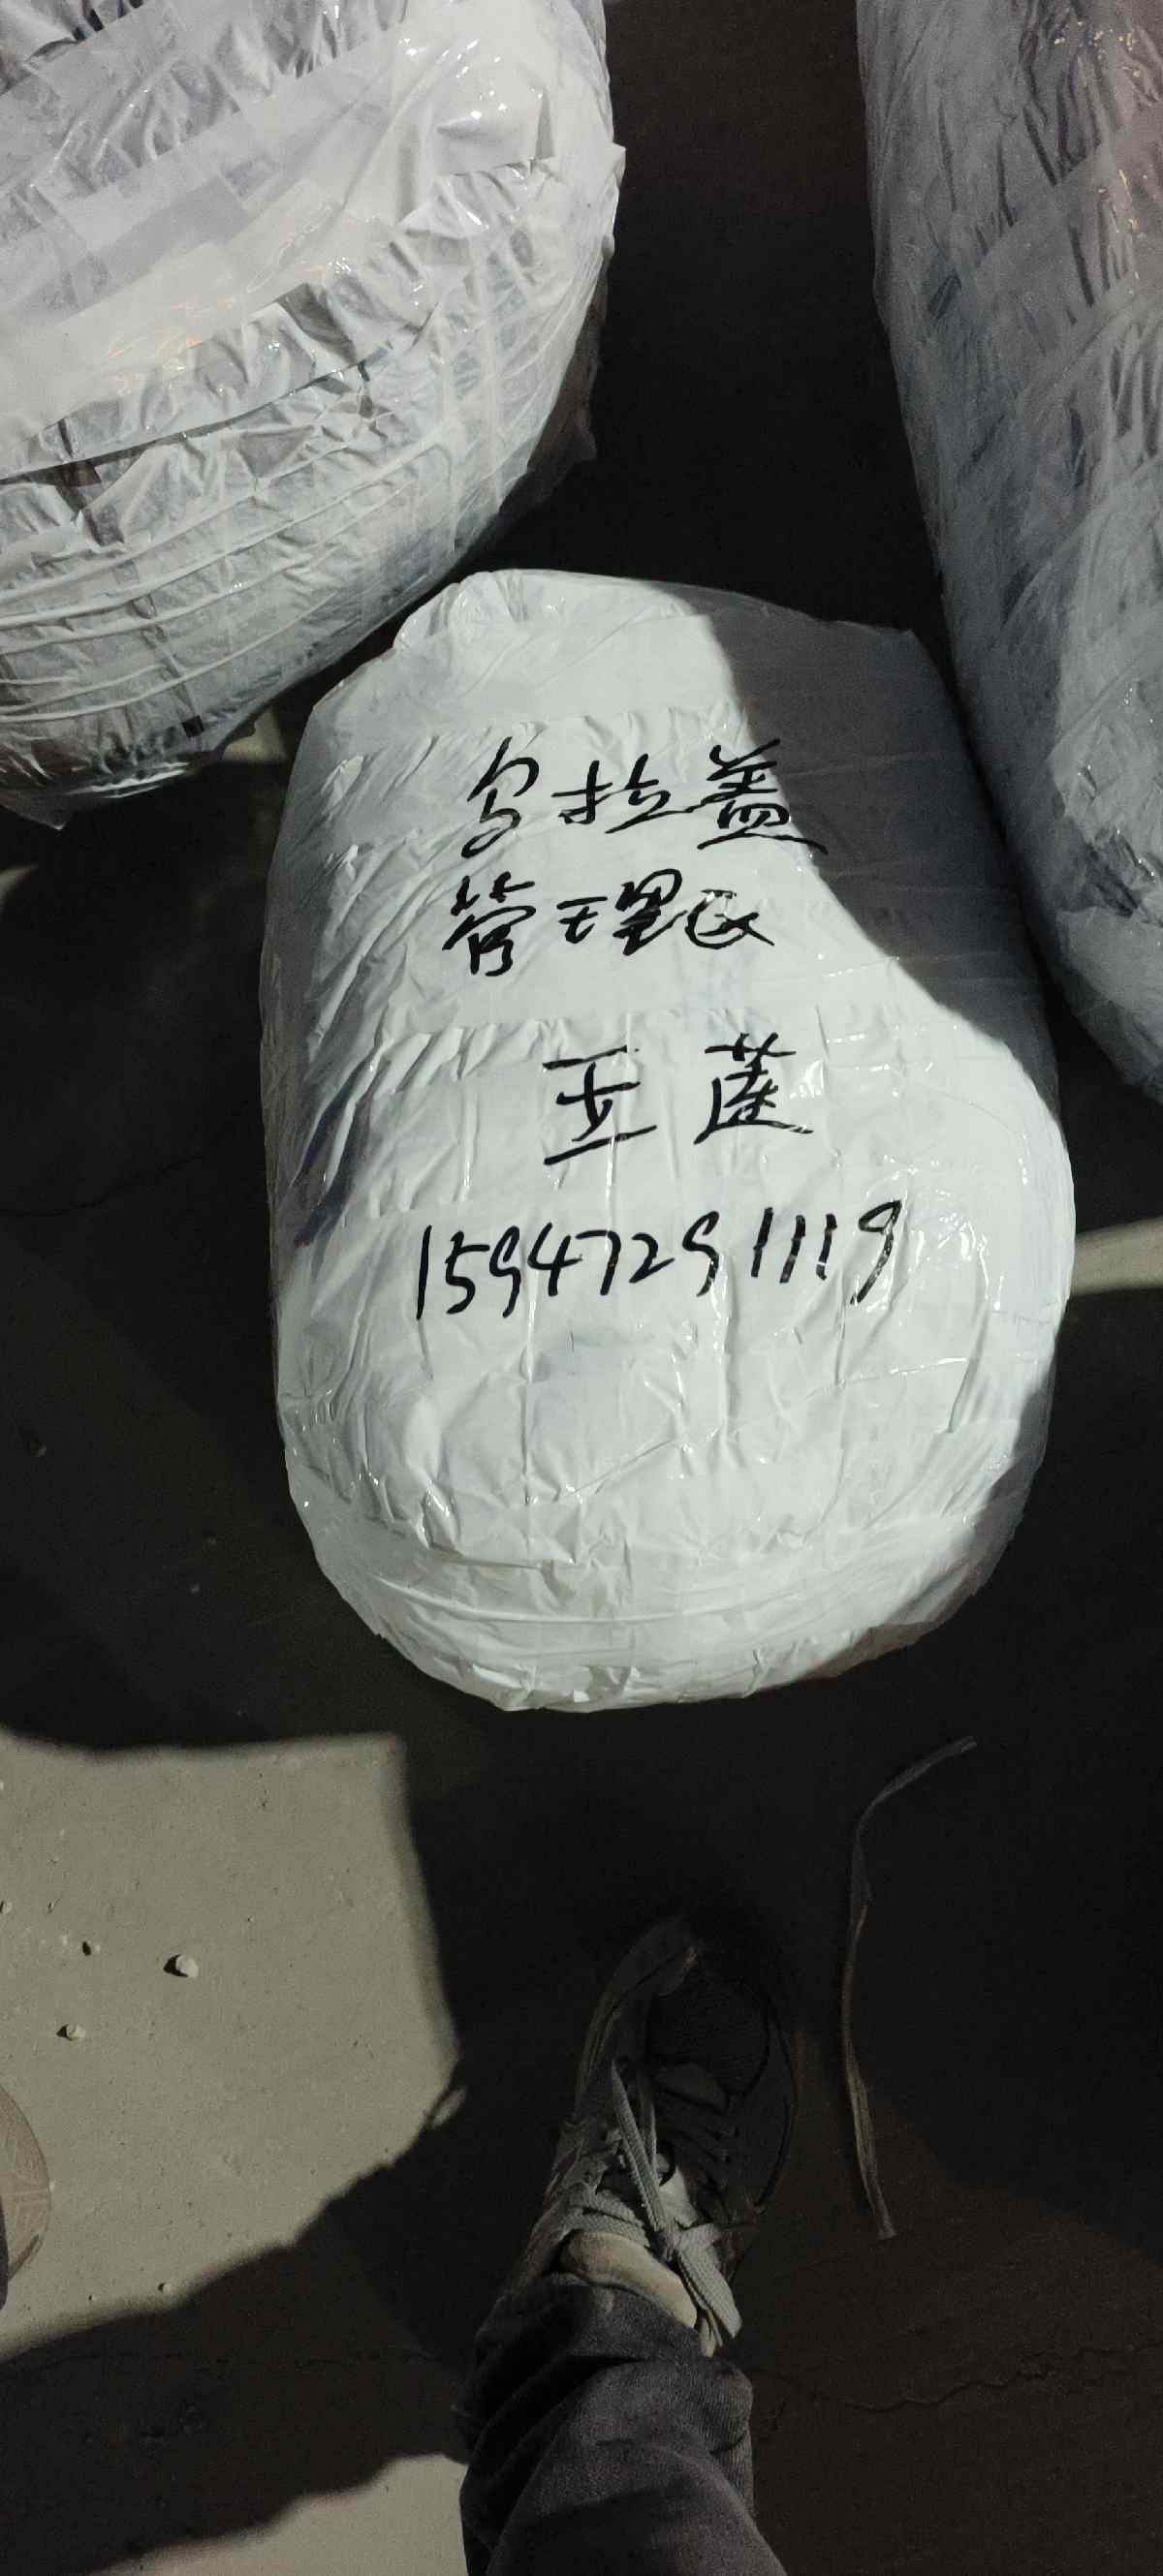 乌拉盖
管理区
王莲
15947291119